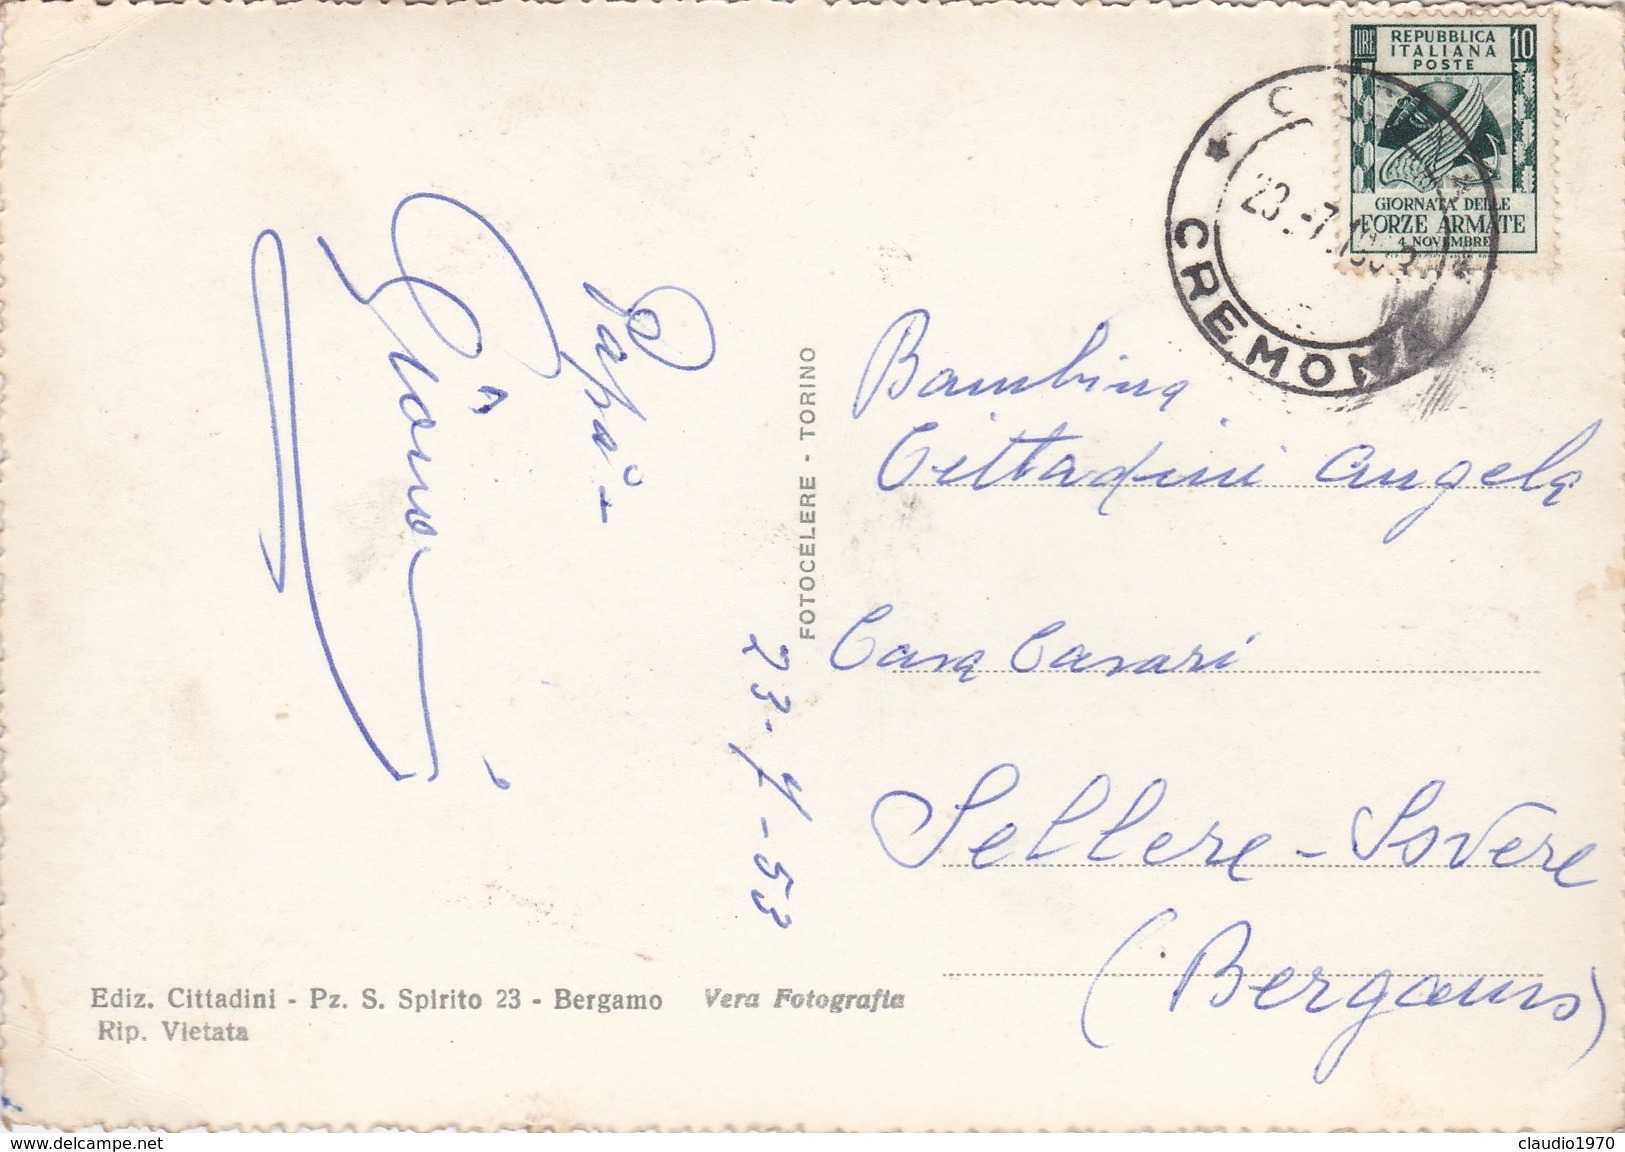 LIRE 10
REPUBBLICA
ITALIANA
POSTE
GIORNATA DELLE
FORZE ARMATE
4 NOVEMBRE
CREMONA
23.-7.
Papà -
23-7-53
FOTOCELERE - TORINO
Bambina
Cittadini Angela
Casa Casari
Sellere - Sovere
(Bergamo)
Ediz. Cittadini - Pz. S. Spirito 23 - Bergamo Vera Fotografia
Rip. Vietata
www.delcampe.net
claudio1970